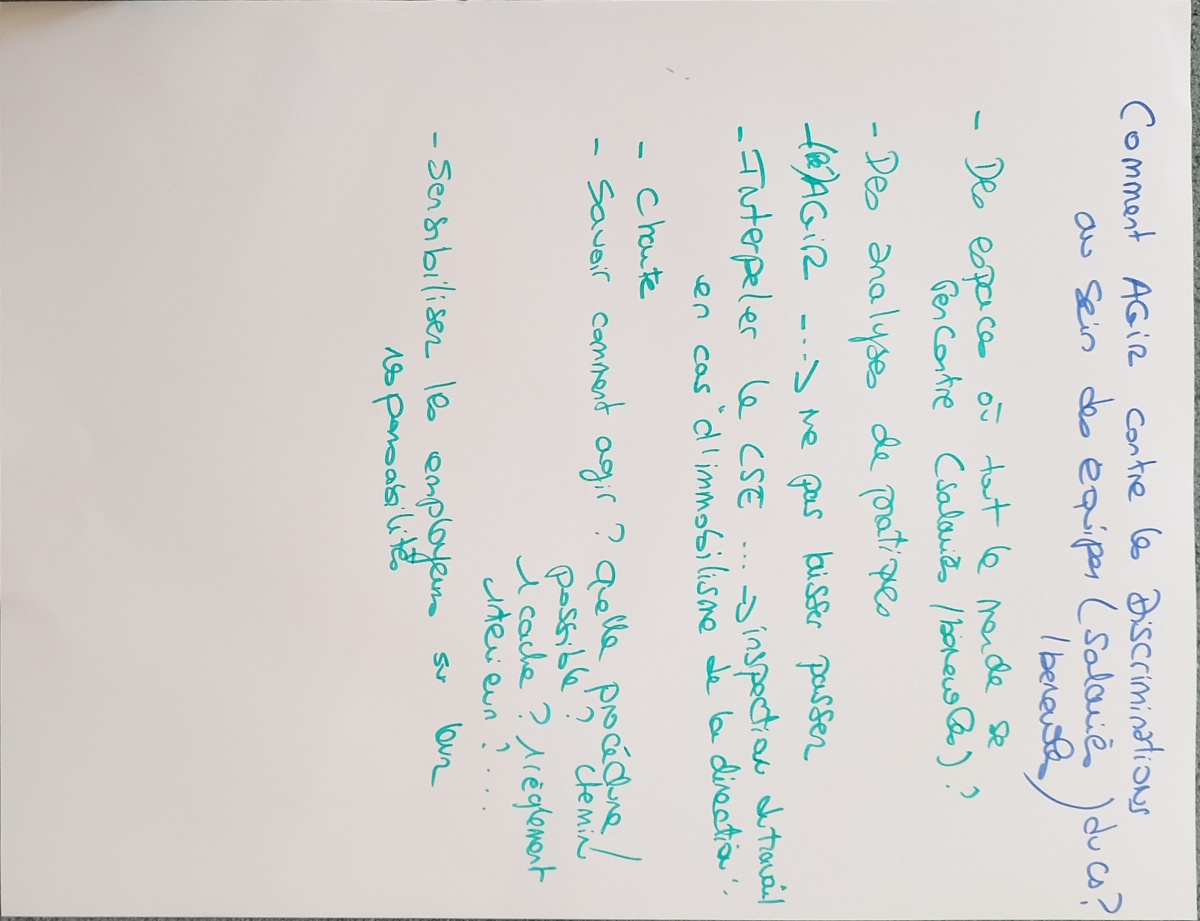 Comment AGir contre les Discriminations
au sein des equipes (salariés
/benevoles) du CS?
- Des espaces où tout le monde se
rencontre (salariés/benevoles)?
- Des analyses de pratiques
- (ré)AGiR ...-> ne pas laisser passer
- Interpeler le CSE ...-> inspection du travail
en cas "d'immobilisme de la direction".
- Charte
- Savoir comment agir? quelle procédure/
possible? chemin
1 cadre? 1 règlement
interieur? ....
- Sensibiliser les employeurs sur leur
responsabilité